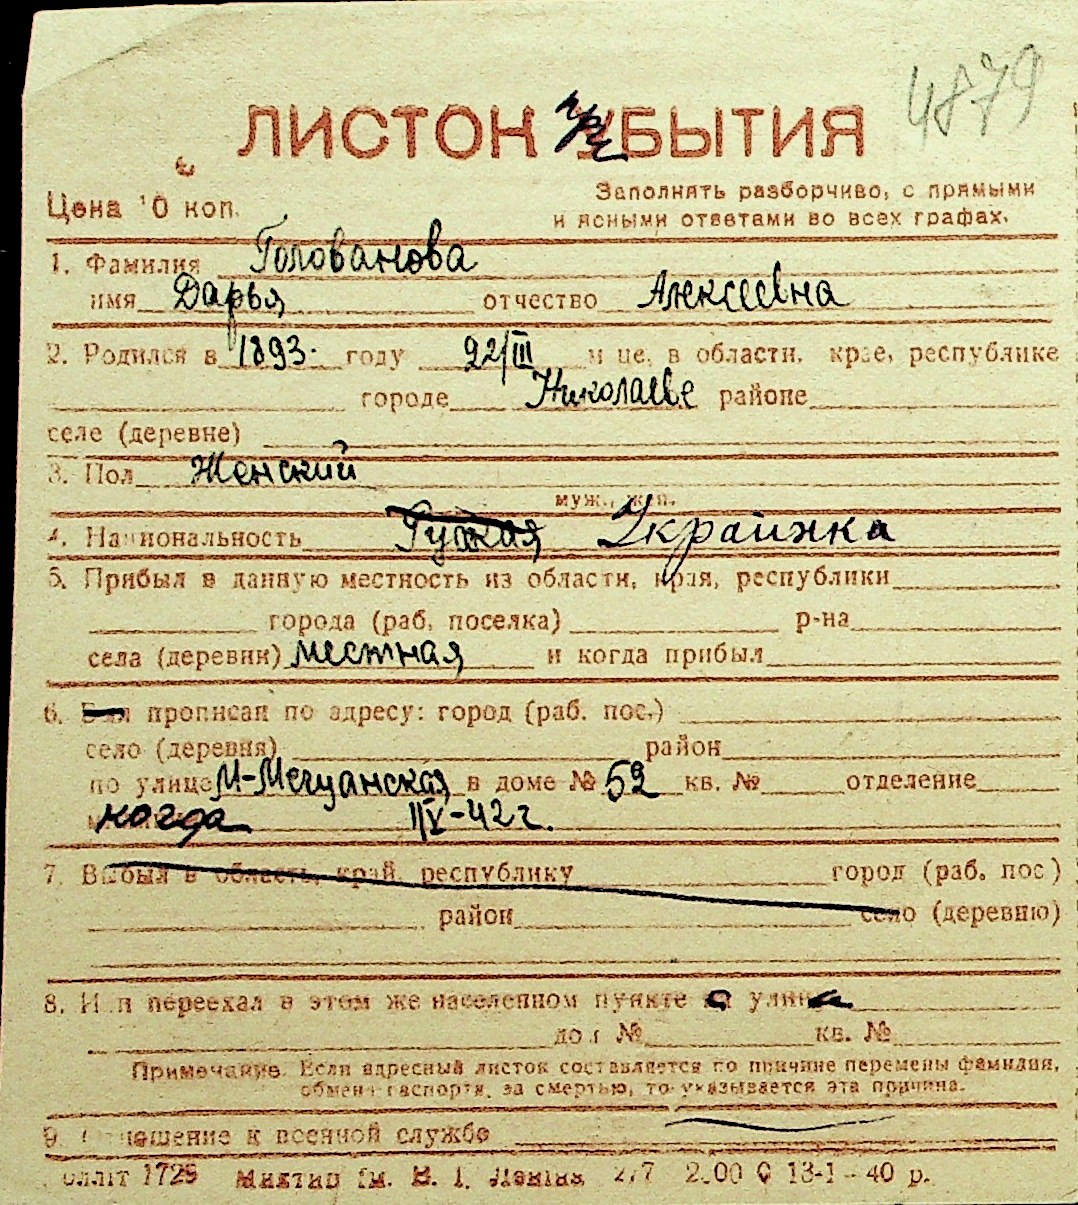 4879
ЛИСТОК прИБЫТИЯ
Цена 10 коп.
Заполнять разборчиво, с прямыми
и ясными ответами во всех графах.
1. Фамилия Голованова
имя Дарья отчество Алексеевна
2. Родился в 1893. году 22/III м-це. в области, крае, республике
городе Николаеве районе
селе (деревне)
3. Пол Женский
муж., жен.
4. Национальность Русская Украинка
5. Прибыл в данную местность из области, края, республики
города (раб. поселка) р-на
села (деревни) местная и когда прибыл
6. прописан по адресу: город (раб. пос.)
село (деревня) район
по улице М-Мещанская в доме № 52 кв. № отделение
когда 1/V-42 г.
7. Выбыл в область, край, республику город (раб. пос)
район село (деревню)
8. Или переехал в этом же населенном пункте улица
дом № кв. №
Примечание. Если адресный листок составляется по причине перемены фамилии,
обмена паспорта, за смертью, то указывается эта причина.
9. Отношение к военной службе
1729 2.00 13-1-40 р.